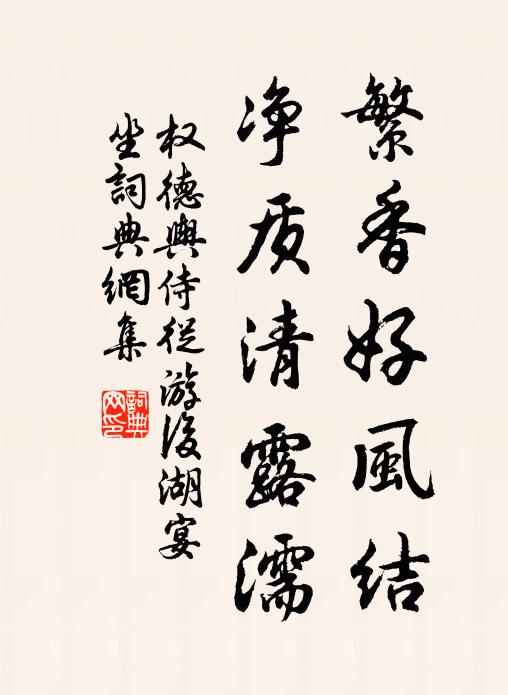 繁香好風結
净质清露濡
权德輿侍從游後湖宴
坐詞典網集
詞典网印